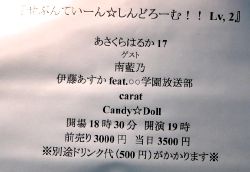 『せぶんてぃーん☆しんどろーむ！！ Lv, 2』
あさくらはるか 17
ゲスト
南藍乃
伊藤あすか feat.○○学園放送部
carat
Candy☆Doll
開場 18 時 30 分　開演 19 時
前売り 3000 円　当日 3500 円
※別途ドリンク代（500 円）がかかります※